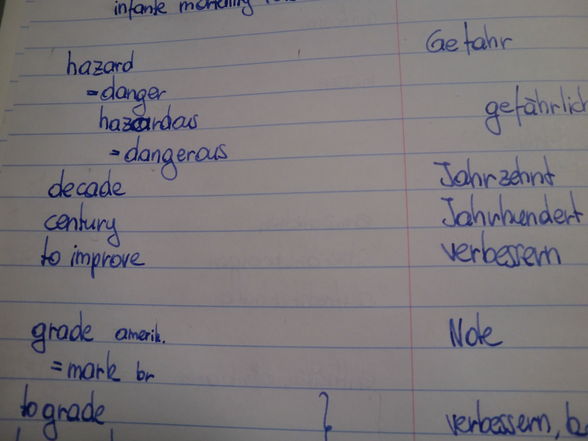 hazard Gefahr
= danger
hazardous gefährlich
= dangerous
decade Jahrzehnt
century Jahrhundert
to improve verbessern
grade amerik. Note
= mark br
to grade } verbessern,